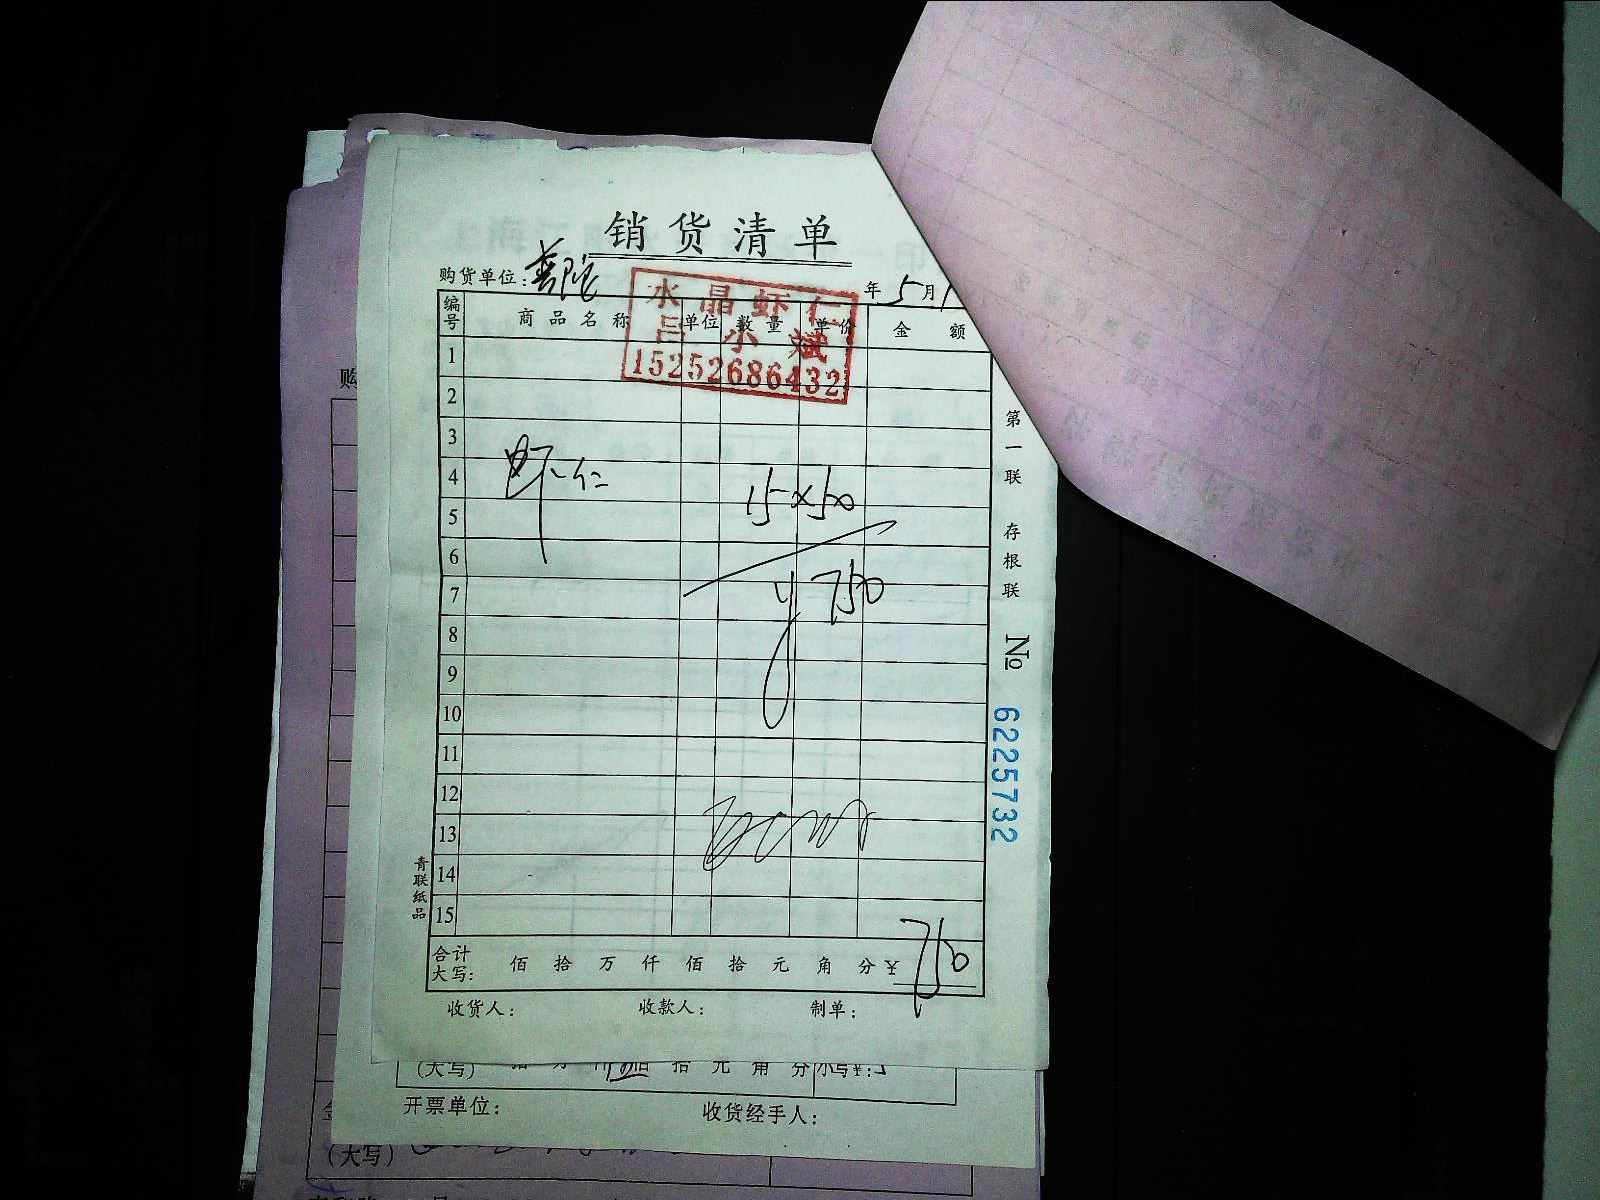 销货清单
购货单位:
年5月1
水晶虾仁
吕小斌
15252686432
编号 商品名称 单位 数量 单价 金额
1
2
3
虾仁
4
15×50
5
6
7
¥750
8
9
10
11
12
13
14
15
合计大写: 佰 拾 万 仟 佰 拾 元 角 分 ¥ 750
收货人: 收款人: 制单:
第一联 存根联
№ 6225732
青联纸品
购
(大写) 拾 元 角 分 小写¥:
开票单位: 收货经手人:
(大写)